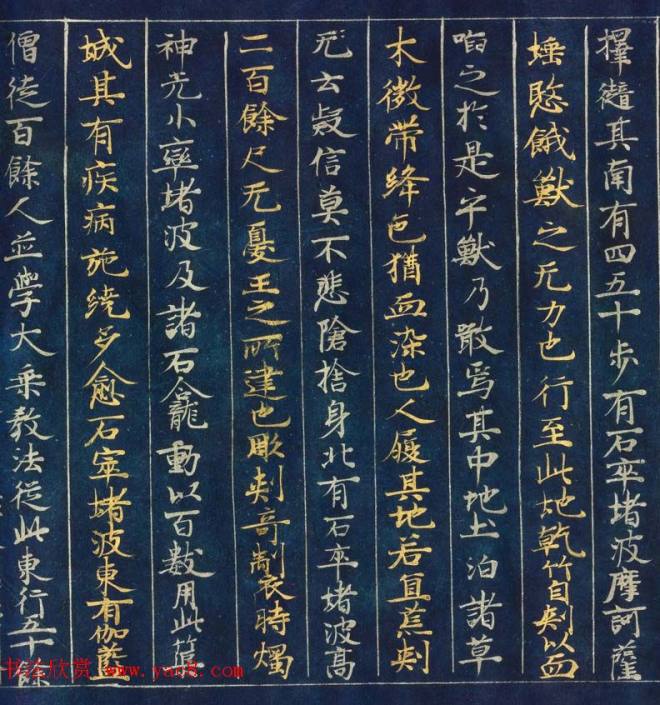 擇其南有四五十步有石窣堵波摩訶薩
埵愍餓獸之无力也行至此地乾竹自刺以血
啗之於是乎獸乃噉焉其中地土洎諸草
木微帶絳色猶血染也人履其地若負芒刺
无云疑信莫不悲愴捨身北有石窣堵波高
二百餘尺无憂王之所建也彫刻奇製時燭
神光小窣堵波及諸石龕動以百數周此塋
域其有疾病旋繞多愈石窣堵波東有伽藍
僧徒百餘人並學大乘教法從此東行五十餘
书法欣赏 www.yac8.com